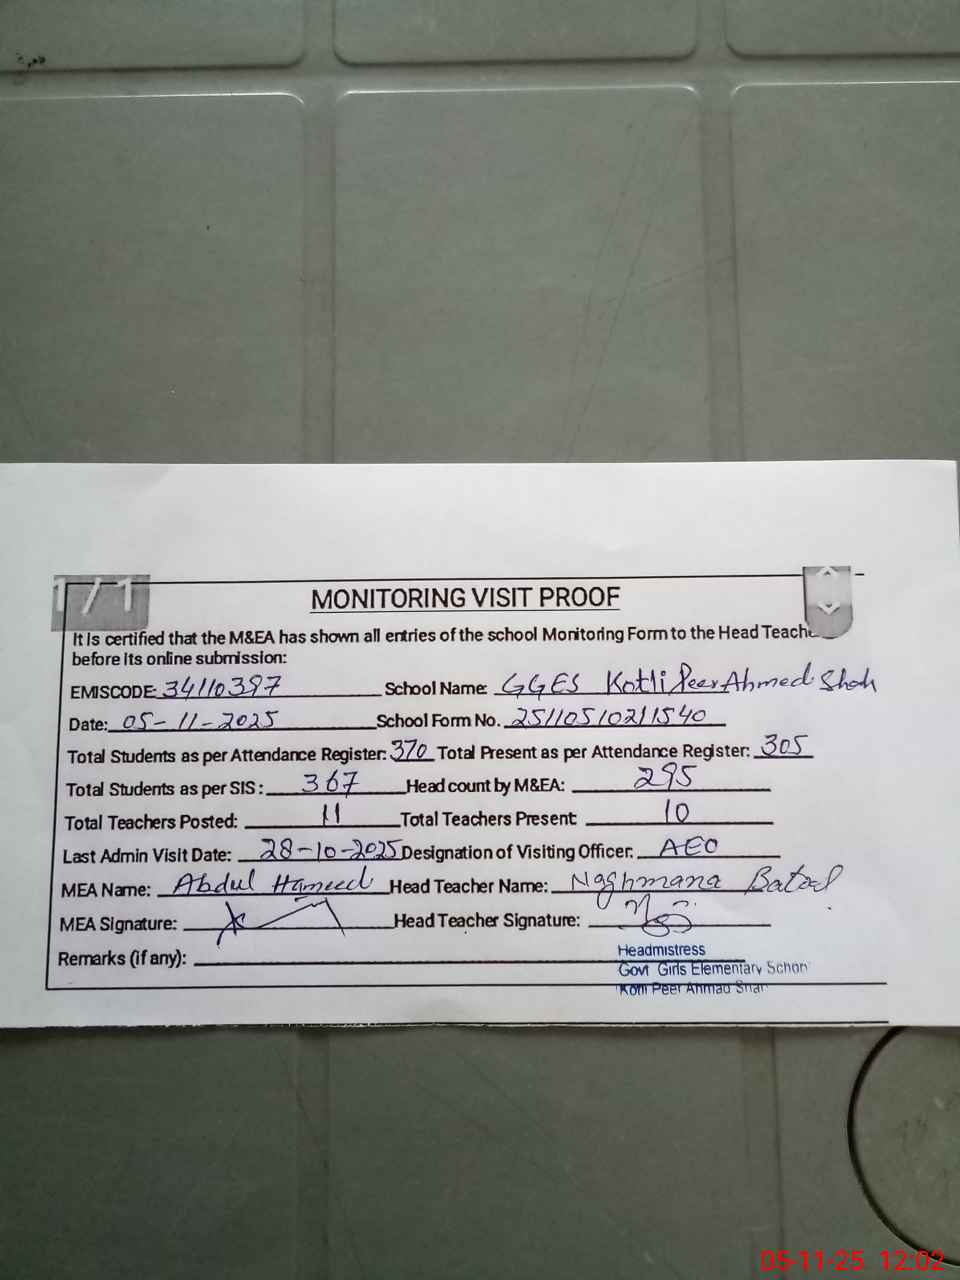 1 / 1
MONITORING VISIT PROOF
It is certified that the M&EA has shown all entries of the school Monitoring Form to the Head Teache
before its online submission:
EMISCODE: 34110397 School Name: GGES Kotli Peer Ahmed Shah
Date: 05-11-2025 School Form No. 2511051021540
Total Students as per Attendance Register: 370 Total Present as per Attendance Register: 305
Total Students as per SIS : 367 Head count by M&EA: 295
Total Teachers Posted: 11 Total Teachers Present: 10
Last Admin Visit Date: 28-10-2025 Designation of Visiting Officer: AEO
MEA Name: Abdul Hameed Head Teacher Name: Naghmana Batool
MEA Signature: Head Teacher Signature:
Remarks (if any):
Headmistress
Govt Girls Elementary School
Kotli Peer Ahmad Shah
05-11-25 12:02